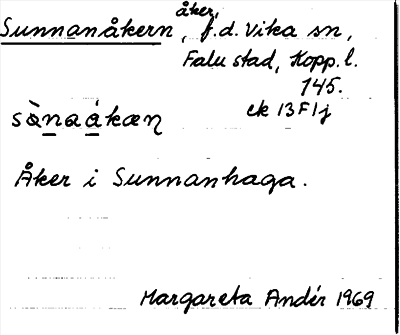 Sunnanåkern, åker, f.d. Vika sn,
Falu stad, Kopp. l.
145.
ek 13F1j
sànaákæn
Åker i Sunnanhaga.
Margareta Andér 1969